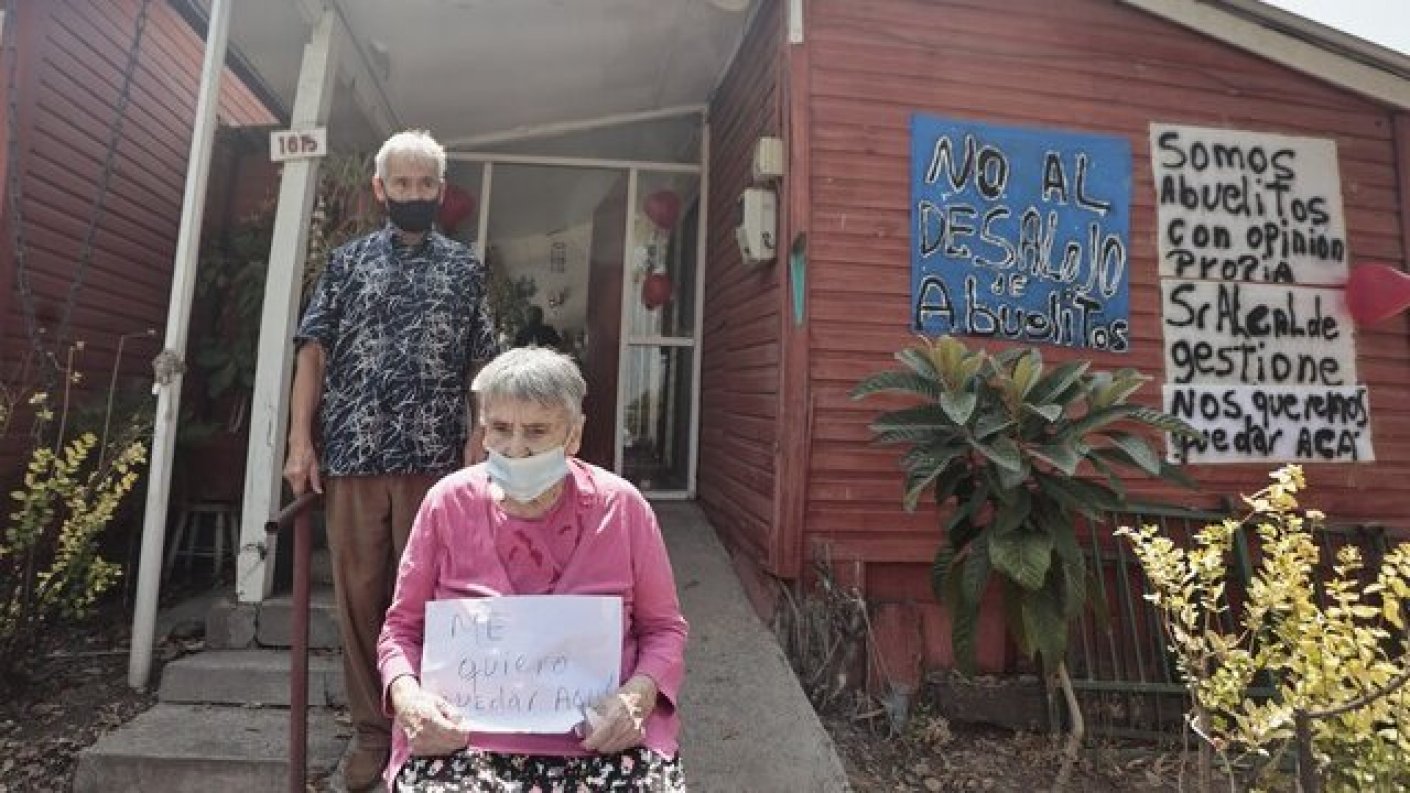 1615
NO AL
DESALOJO
DE
AbuelitOs
Somos
Abuelitos
con opinion
propia
Sr ALCALde
gestione
Nos, queremos
quedar ACÁ
ME
quiero
quedar AQUÍ